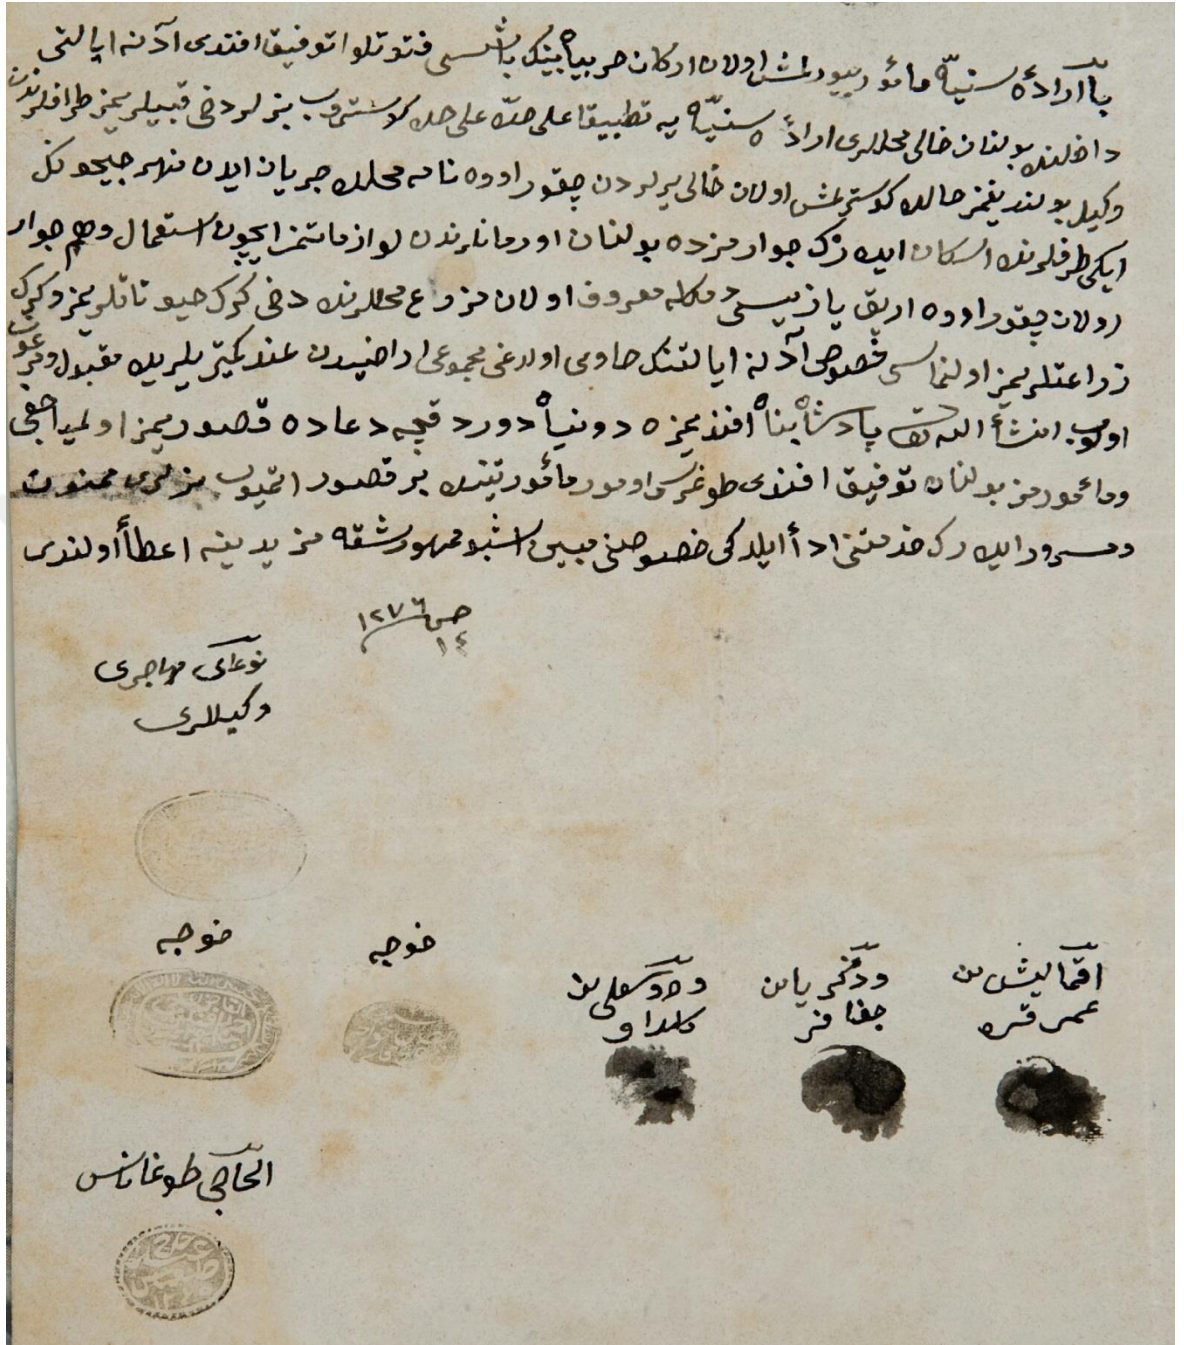 با ارادهٔ سنیّه مأمور بیورلمش اولان ارکان حربیه بیڭباشیسی فتوتلو توفیق افندی آدنه ایالتی
داخلنده بولنان خالی محللری ارادهٔ سنیّه یه تطبیقا علی حدّه علی حده کوستروب بزلر دخی قبیله لریمز طرفلرندن
وکیل بولندیغمز حالده کوسترلمش اولان خالی یرلردن چقور اووه نام محلده جریان ایدن نهر جیحونڭ
ایکی طرفلرنده اسکان ایدەرک جوارمزده بولنان اورمانلرندن لوازماتمز ایچون استعمال وهم جوار
اولان چقور اووه یازیسی دمکله معروف اولان مزرع محللرنده دخی کرک حیوناتلریمز و کرک
زراعتلریمز اولنماسی خصوصی آدنه ایالتنڭ حاوی اولدغی مجموعی اراضیدن عندکمتریلریده مقبول ومرغوب
اولوب انشأ الله تعالی پادشاه پناه افندیمزه دونیا دوردقچه دعاده قصوریمز اولمیەجغی
ومأمورمز بولنان توفیق افندی طوغریسی اومور مأموریتنده بر قصور اتمیوب بزلری ممنون
ومسرور ایدەرک خدمتنی ادأ ایلدکی خصوصنی مبین اشبو ممهور شقه مز یدینه اعطأ اولندی
ص ١٢٧٦
١٤
نوغای مهاجری
وکیللری
خوجه
خوجه
بن
بن
بن
عمر
الحاجی طوغان